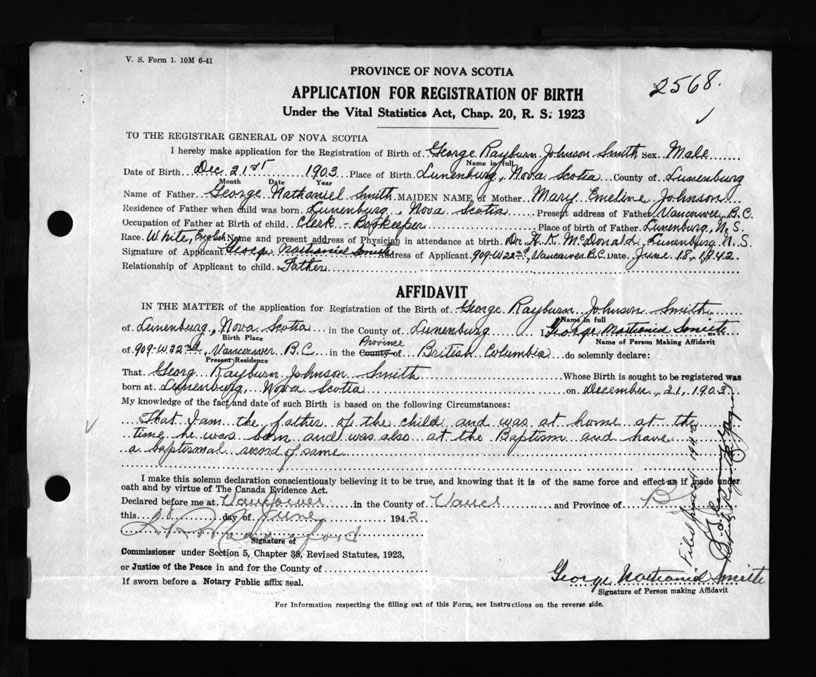 V. S. Form 1. 10M 6-41
2568.
PROVINCE OF NOVA SCOTIA
APPLICATION FOR REGISTRATION OF BIRTH
Under the Vital Statistics Act, Chap. 20, R. S. 1923
TO THE REGISTRAR GENERAL OF NOVA SCOTIA
I hereby make application for the Registration of Birth of George Rayburn Johnson Smith Sex Male
Name in full
Date of Birth Dec 21st 1903 Place of Birth Lunenburg, Nova Scotia County of Lunenburg
Month Date Year
Name of Father George Nathaniel Smith MAIDEN NAME of Mother Mary Emeline Johnson
Residence of Father when child was born Lunenburg, Nova Scotia Present address of Father Vancouver, B.C.
Occupation of Father at Birth of child Clerk - Bookkeeper Place of birth of Father Lunenburg, N.S.
Race White, English Name and present address of Physician in attendance at birth Dr. H. K. McDonald, Lunenburg N.S.
Signature of Applicant George Nathaniel Smith Address of Applicant 909-W 22nd, Vancouver B.C. Date June 18, 1942.
Relationship of Applicant to child Father
AFFIDAVIT
IN THE MATTER of the application for Registration of the Birth of George Rayburn Johnson Smith
Name in full
of Lunenburg, Nova Scotia in the County of Lunenburg I, George Nathaniel Smith
Birth Place Name of Person Making Affidavit
Province
of 909-W 22nd, Vancouver B.C in the County of British Columbia do solemnly declare:
Present Residence
That George Rayburn Johnson Smith Whose Birth is sought to be registered was
born at Lunenburg, Nova Scotia on December, 21, 1903
My knowledge of the fact and date of such Birth is based on the following Circumstances:
That I am the father of the child and was at home at the
time he was born and was also at the Baptism and have
a baptismal record of same
I make this solemn declaration conscientiously believing it to be true, and knowing that it is of the same force and effect as if made under
oath and by virtue of The Canada Evidence Act.
Declared before me at Vancouver in the County of Vancr and Province of B.C.
this 18 day of June 1942
Signature of
Commissioner under Section 5, Chapter 38, Revised Statutes, 1923,
or Justice of the Peace in and for the County of
If sworn before a Notary Public affix seal.
George Nathaniel Smith
Signature of Person making Affidavit
For Information respecting the filling out of this Form, see Instructions on the reverse side.
Filed